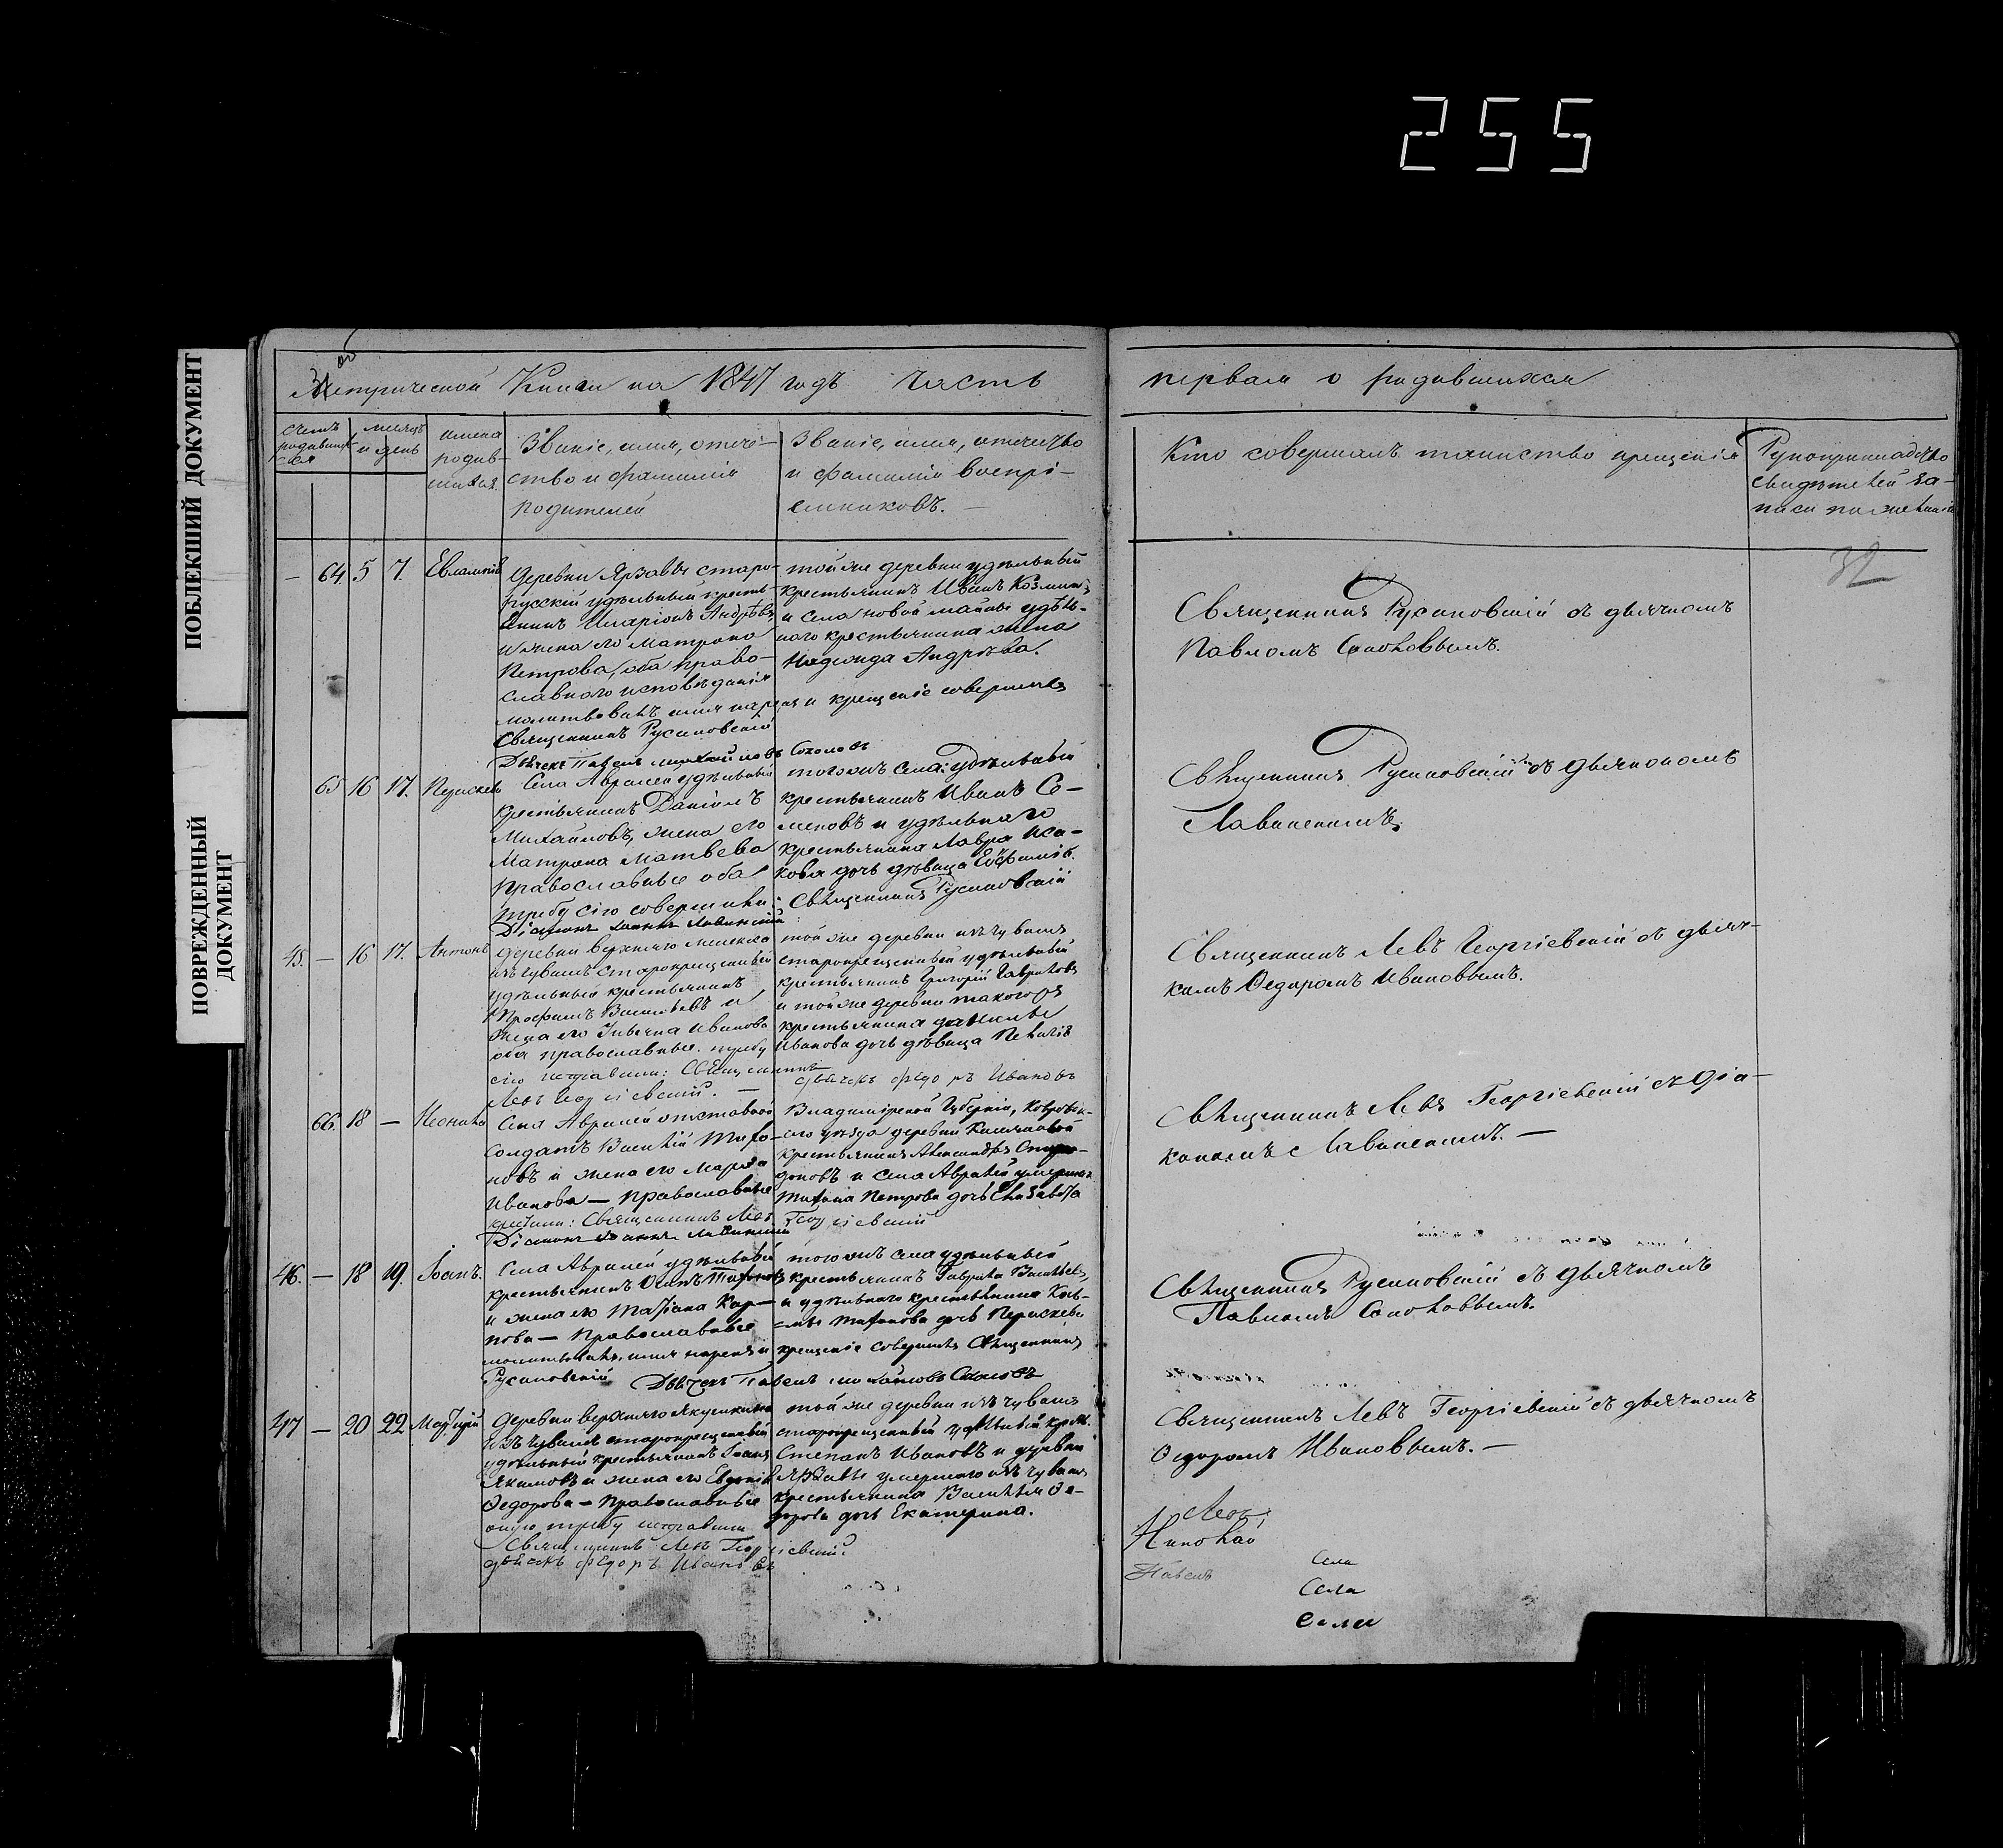 255
ПОБЛЕКШИЙ ДОКУМЕНТ
ПОВРЕЖДЕННЫЙ
ДОКУМЕНТ
Метрической Книги на 1847 годъ часть
первая о родившихся
счетъ
родивших
ся
месяцъ
и день
имена
родив-
шихся.
Званіе, имя, отече-
ство и фамилія
родителей
Званіе, имя, отечество
и фамилія воспрі-
емниковъ.
Кто совершалъ таинство крещенія
Рукоприкладство
свидѣтелей за-
писи по желанію
32
— 64 5 7. Евлампій
Деревни Ярзавы старо-
русскій удѣльный кресть-
янинъ Иларіонъ Андрѣевъ
и жена его Матрона
Петрова, оба право-
славнаго исповѣданія
молитвовалъ имя нарекъ и крещеніе совершалъ
Священникъ Русановскій
Дьячекъ Павелъ Михайловъ Соколовъ
той же деревни удѣльный
крестьянинъ Иванъ Козминъ
и села новой майны удѣль-
наго крестьянина жена
Надежда Андрѣева.
Священникъ Русановскій съ дьячкомъ
Павломъ Соколовымъ.
65 16 17. Параскева
Села Авралей удѣльный
крестьянинъ Даніилъ
Михайловъ, жена его
Матрона Матвѣева
православные оба
требу сію совершили: Священникъ Русановскій
Діаконъ Іоаннъ Лавинскій
того жъ села удѣльный
крестьянинъ Иванъ Се-
меновъ и удѣльнаго
крестьянина Лавра Иса-
кова дочь дѣвица Евфимія.
Священникъ Русановскій съ дьякономъ
Лавинскимъ.
45. — 16 17. Антонъ
деревни верхняго мелекеса
изъ чувашъ старокрещенный
удѣльный крестьянинъ
Трофимъ Васильевъ и
жена его Ульяна Иванова
оба православные. требу
сію исправили: Священникъ
Левъ Георгіевскій. —
дьячекъ Федоръ Ивановъ
той же деревни изъ чувашъ
старокрещенный удѣльный
крестьянинъ Григорій Гавриловъ
и той же деревни такогожъ
крестьянина
Иванова дочь дѣвица Пелагія
Священникъ Левъ Георгіевскій съ дьяч-
комъ Ѳедоромъ Ивановымъ.
66. 18 — Неонила
Села Авралей отставной
солдатъ Василій Тихо-
новъ и жена его Марѳа
Иванова — православные
крестили: Священникъ Левъ Георгіевскій
Діаконъ Іоаннъ Лавинскій
Владимірской Губерніи, Ковровска-
го уѣзда деревни
крестьянинъ Александръ Спири-
доновъ и села Авралей умершаго
Тихона Петрова дочь Елизавета
Священникъ Левъ Георгіевскій съ діа-
кономъ Лавинскимъ. —
46. — 18 19. Іоанъ.
Села Авралей удѣльный
крестьянинъ Осипъ Тихоновъ
и жена его Татіана Кар-
пова — православные
молитвовалъ, имя нарекъ и крещеніе совершилъ Священникъ
Русановскій Дьячекъ Павелъ Михайловъ Соколовъ
того жъ села удѣльный
крестьянинъ Гаврила Васильевъ,
и удѣльнаго крестьянина Кузь-
мы Тихонова дочь Параскева
Священникъ Русановскій съ дьячкомъ
Павломъ Соколовымъ.
47 — 20 22 Мартирій
Деревни верхняго Якушкина
изъ чувашъ старокрещенный
удѣльный крестьянинъ Іоанъ
Якимовъ и жена его Евдокія
Ѳедорова — православные
оную требу исправили
Священникъ Левъ Георгіевскій
дьячекъ Федоръ Ивановъ
той же деревни изъ чувашъ
старокрещенный удѣльный крест.
Степанъ Ивановъ и деревни
Ярзавы умершаго изъ чувашъ
крестьянина Василья Ѳе-
дорова дочь Екатерина.
Священникъ Левъ Георгіевскій съ дьячкомъ
Ѳедоромъ Ивановымъ. —
Николай
Павелъ
Села
Села
Села